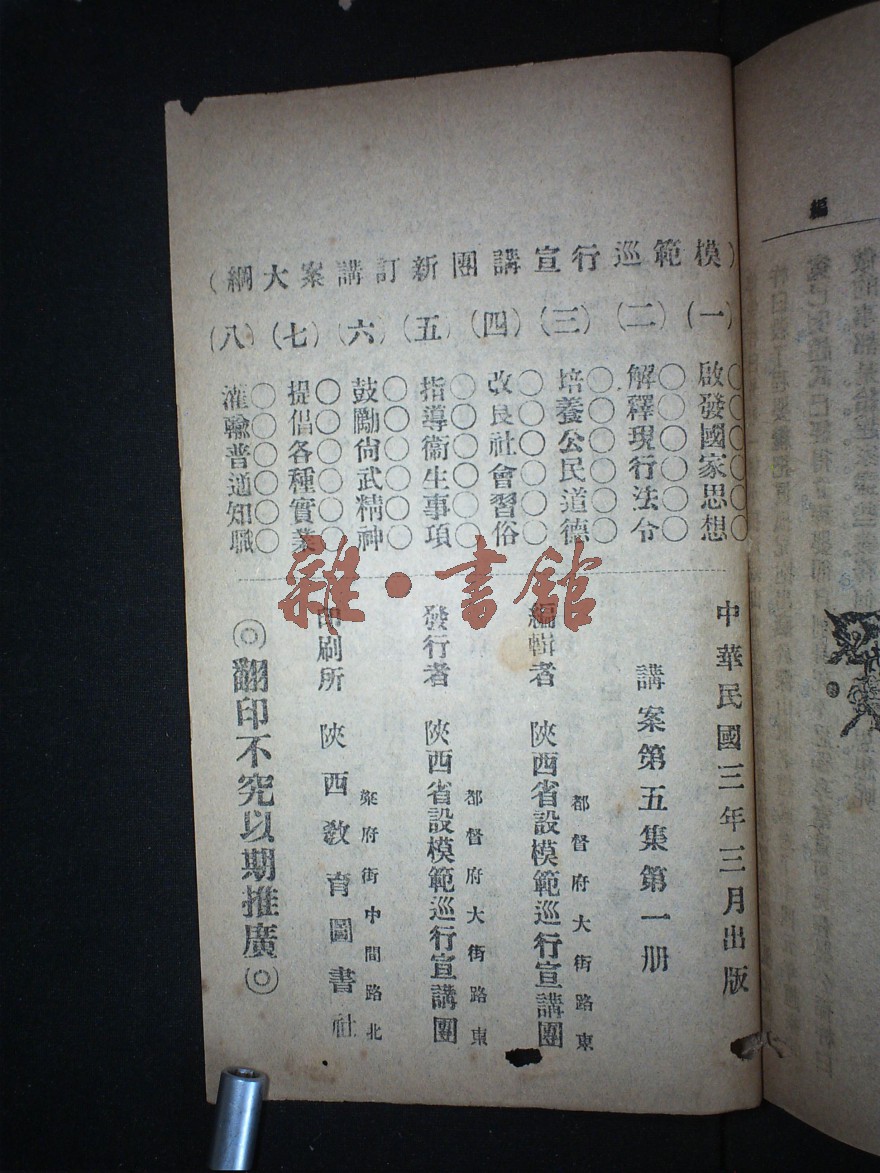 (模範巡行宣講團新訂講案大綱)
(一)啟發國家思想
(二)解釋現行法令
(三)培養公民道德
(四)改良社會習俗
(五)指導衞生事項
(六)鼓勵尙武精神
(七)提倡各種實業
(八)灌輸普通知職
中華民國三年三月出版
講案第五集第一册
都督府大街路東
編輯者 陝西省設模範巡行宣講團
都督府大街路東
發行者 陝西省設模範巡行宣講團
府街中間路北
印刷所 陝西敎育圖書社
◎翻印不究以期推廣◎
雜·書館
編